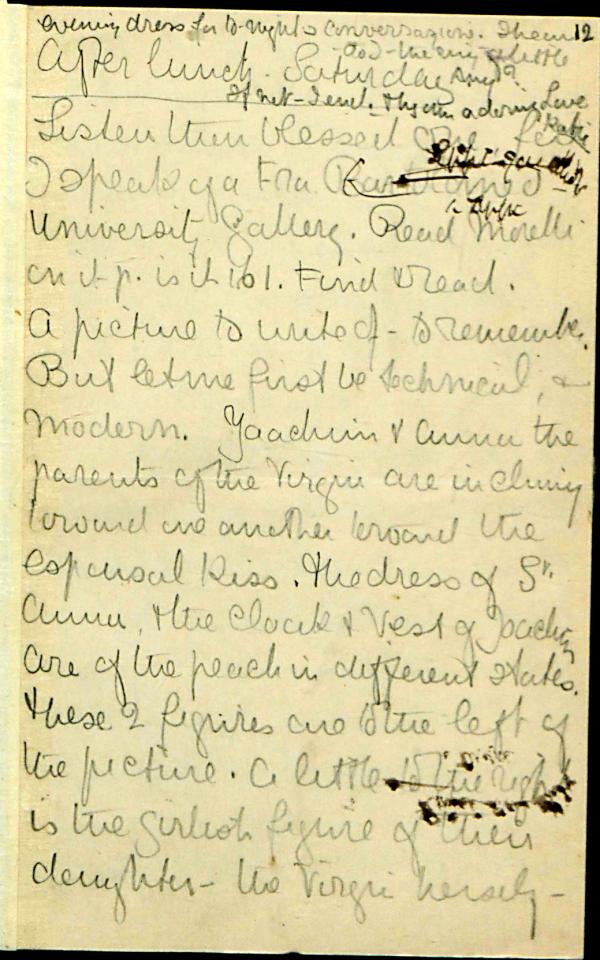 evening dress for to-night's conversazione. I hear 12
to-d- the my little
After lunch. Saturday Amy?
If not - I end. & hym adoring Love
Listen then blessed One for
I speak of a Fra Bartolomeo
University Gallery. Read Morelli
on it p. is it 161. Find & read.
A picture to write of - to remember.
But let me first be technical, &
modern. Yoachim & Anna the
parents of the Virgin are inclining
toward one another toward the
espousal kiss. The dress of St.
Anna, & the cloak & vest of Joachim
are of the peach in different states.
These 2 figures are to the left of
the picture. A little to the right
is the girlish figure of their
daughter - the Virgin herself -